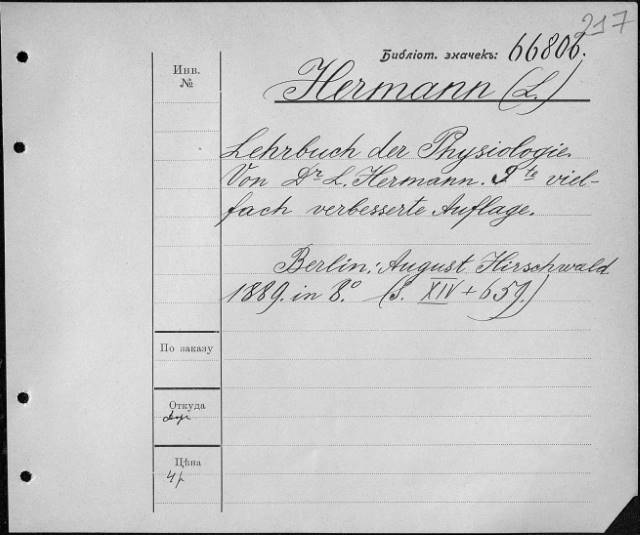 217
Библіот. значекъ: 66806.
Инв.
№
Hermann (L.)
Lehrbuch der Physiologie.
Von Dr L. Hermann. 9te viel-
fach verbesserte Auflage.
Berlin: August Hirschwald
1889. in 8.° (S. XIV + 657.)
По заказу
Откуда
Цѣна
4р